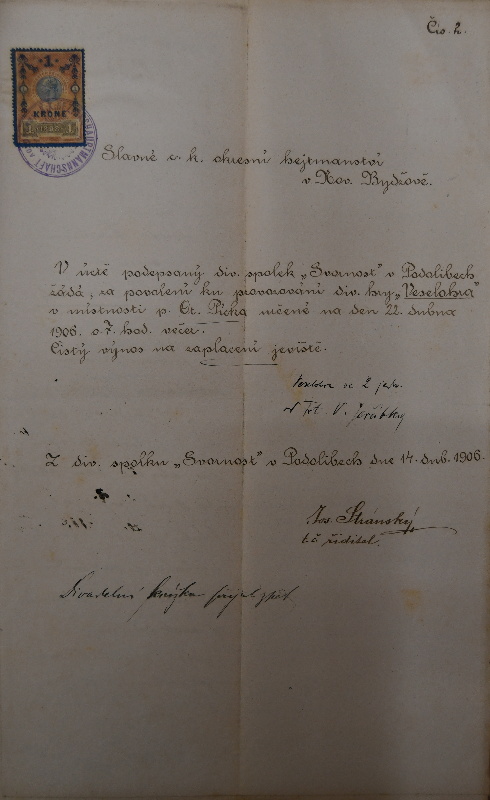 Čís. 2.
1
KRONE
Slavné c. k. okresní hejtmanství
v Nov. Bydžově.
V úctě podepsaný div. spolek „Svornost" v Podolibech
žádá, za povolení ku provozování div. hry „Veselohra"
v místnosti p. Ct. Picka určené na den 22. dubna
1906. o 7. hod. večer.
Čistý výnos na zaplacení jeviště.
Veselohra ve 2 jedn.
V. Jeřábky
Z div. spolku „Svornost" v Podolibech dne 14. dub. 1906.
Jos. Stránský
t. č. řiditel.
Divadelní knížku přijal zpět